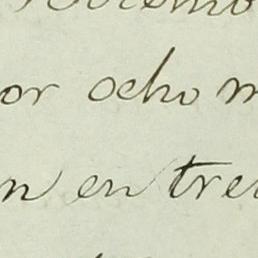 or ocho m
n en tre